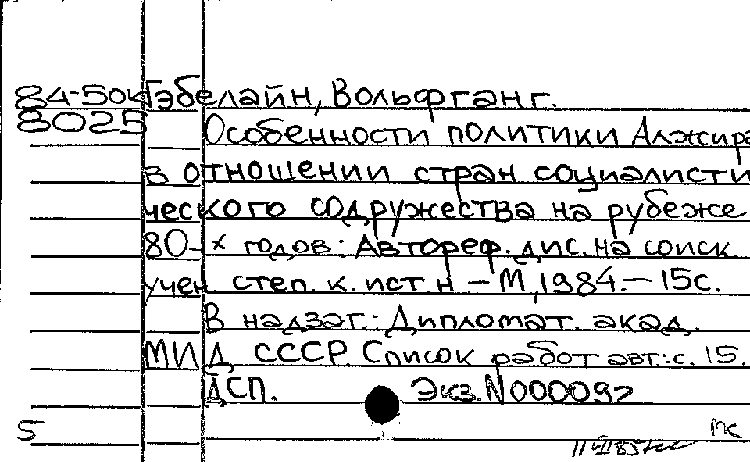 84-50к Гэбелайн, Вольфганг.
8025 Особенности политики Алжира
в отношении стран социалисти
ческого содружества на рубеже
80-х годов: Автореф. дис. на соиск.
учен. степ. к. ист. н. – М, 1984. – 15с.
В надзаг.: Дипломат. акад.
МИД СССР. Список работ авт.: с. 15.
ДСП. Экз. N000092
5 пс